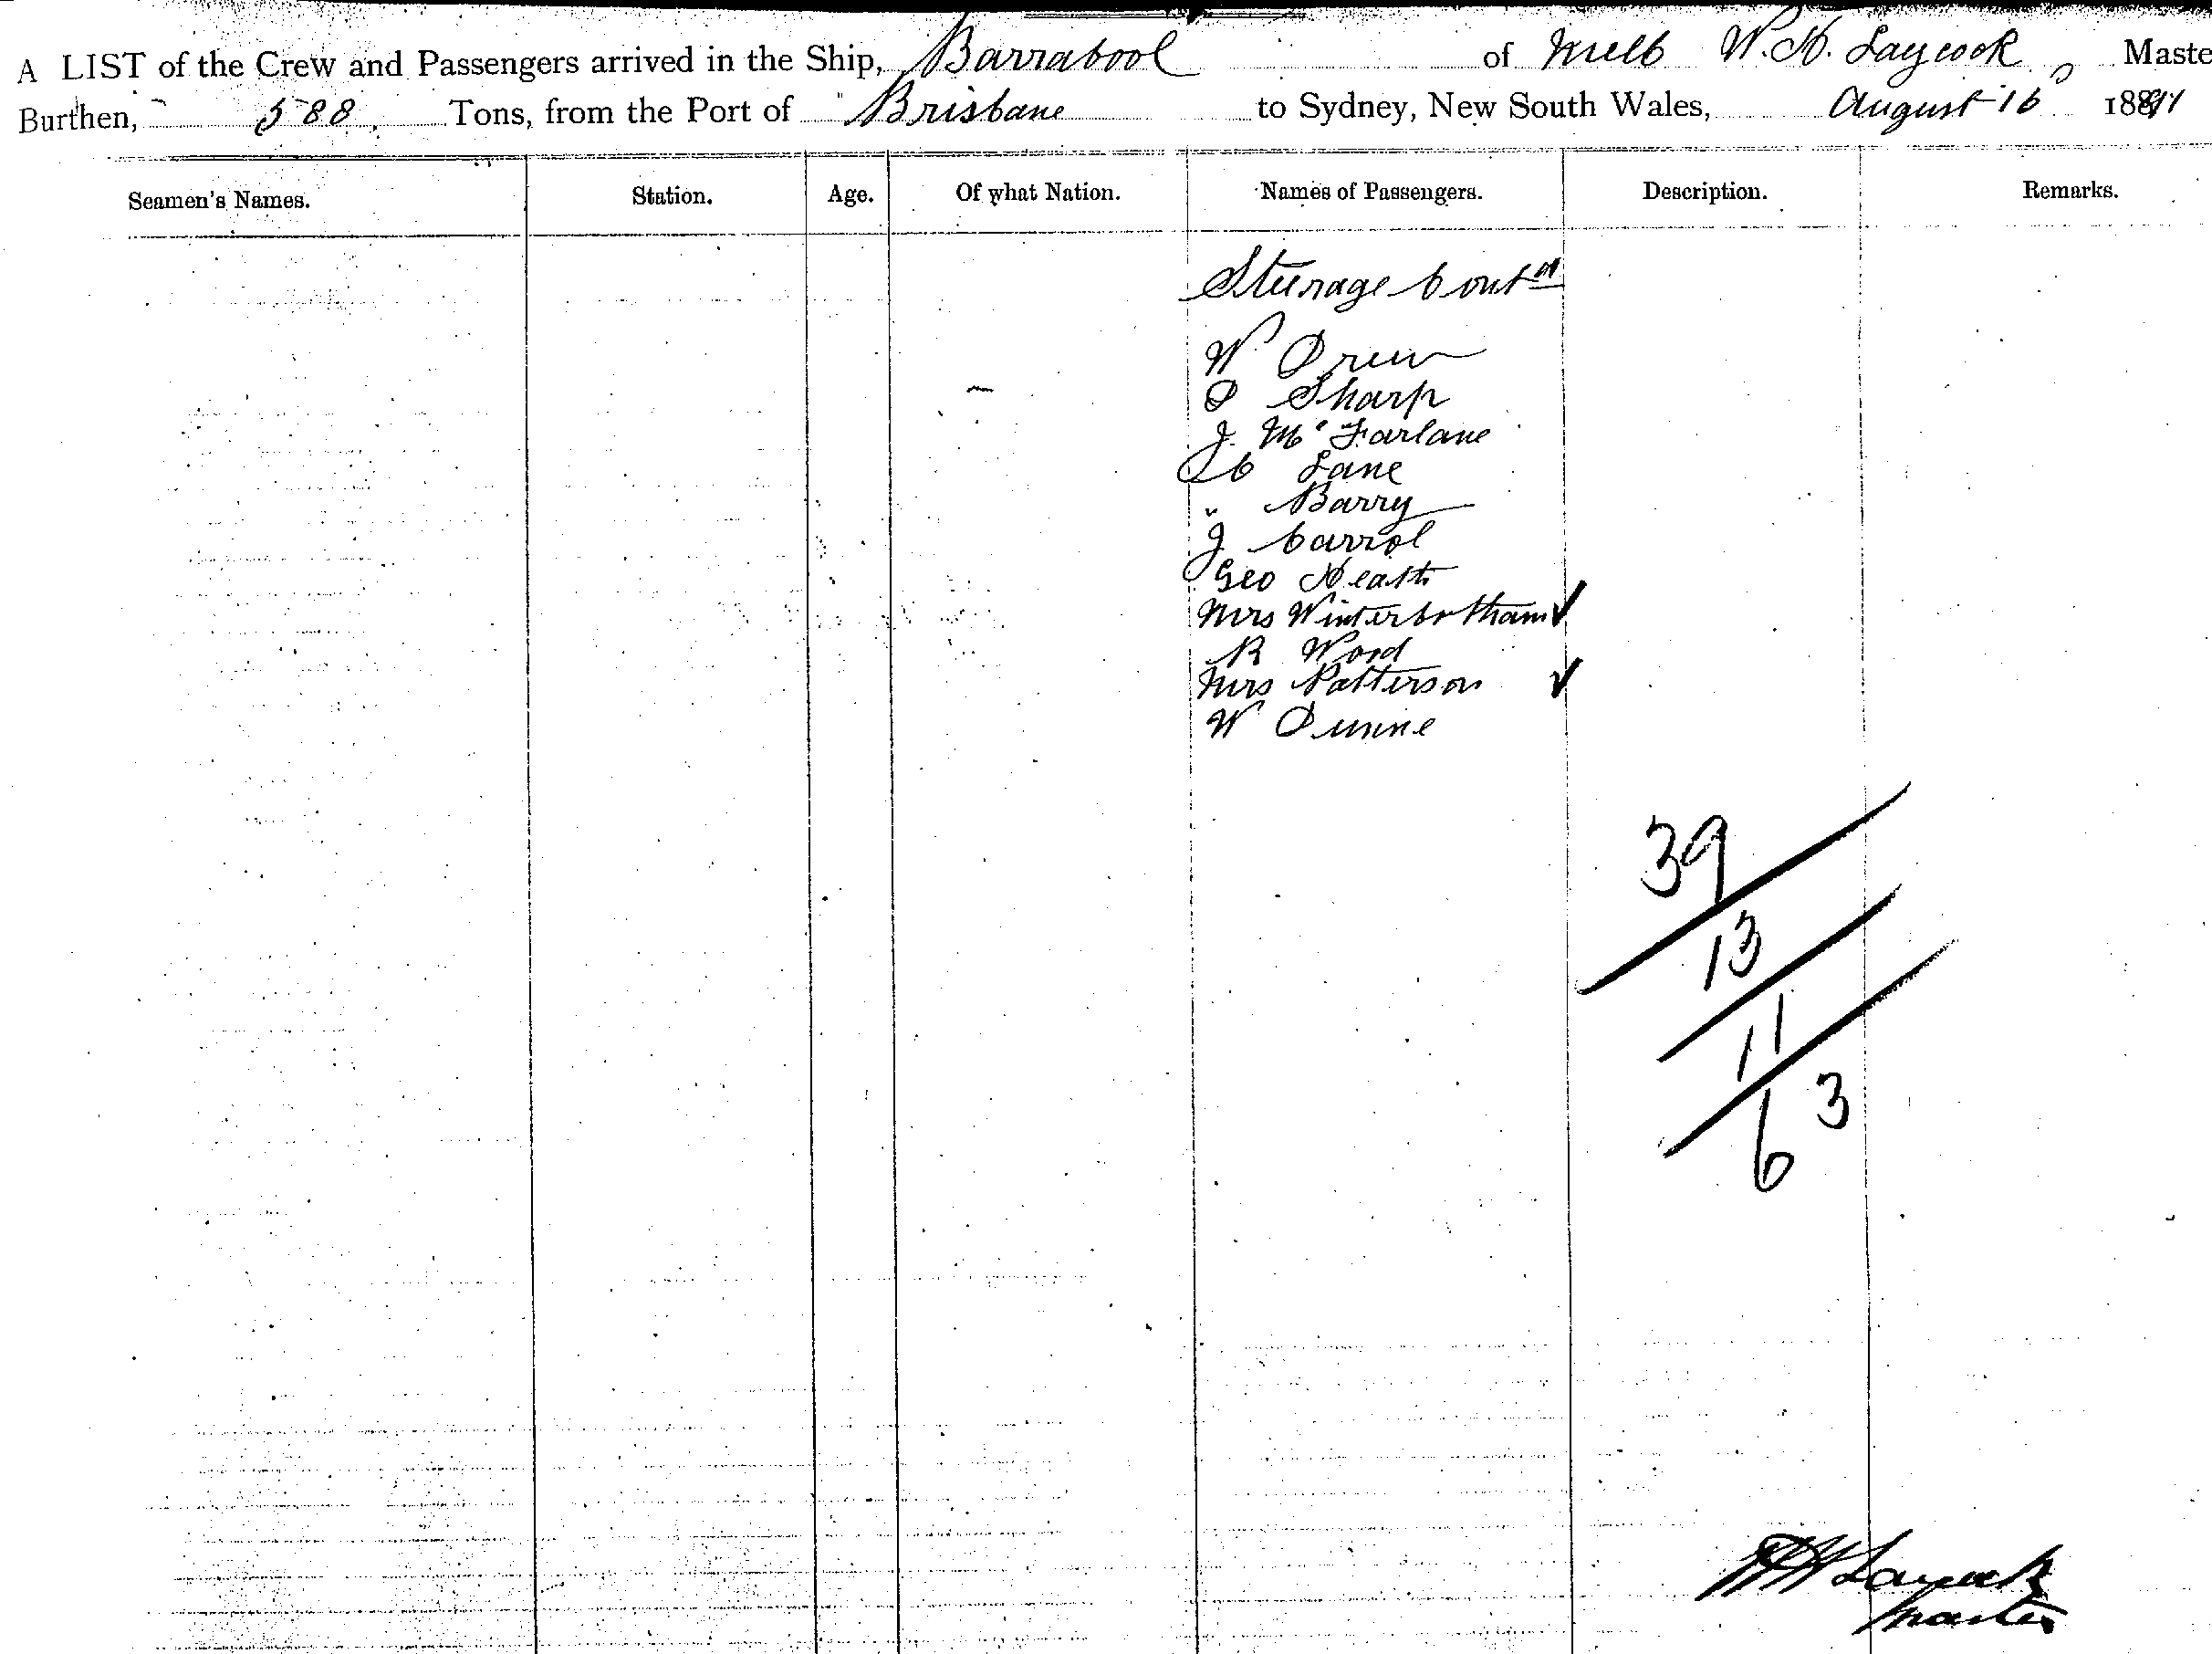 A LIST of the Crew and Passengers arrived in the Ship, Barrabool of Melb W. H. Laycock, Maste
Burthen, 588 Tons, from the Port of Brisbane to Sydney, New South Wales, August 16 188
Seamen's Names. Station. Age. Of what Nation. Names of Passengers. Description. Remarks.
Steerage Contd
W Drew
D Sharp
J. McFarlane
C Lane
" Barry
J Carrol
Geo Heath
Mrs Winterbotham ✓
R Ward
Mrs Patterson ✓
W Dunne
39
13
11
3
6
W H Laycock
Master